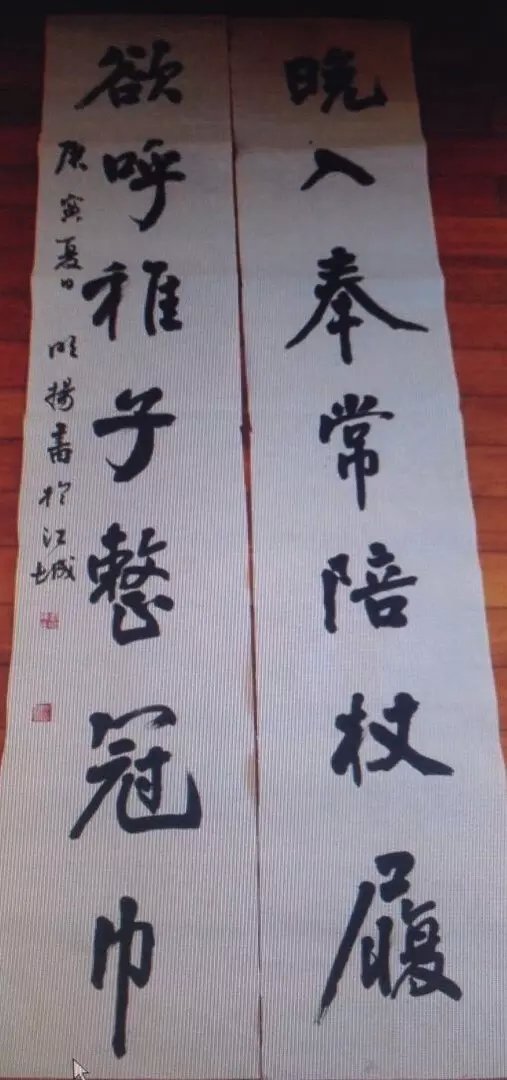 晚入奉常陪杖履
欲呼稚子整冠巾
庚寅夏日明揚書於江城